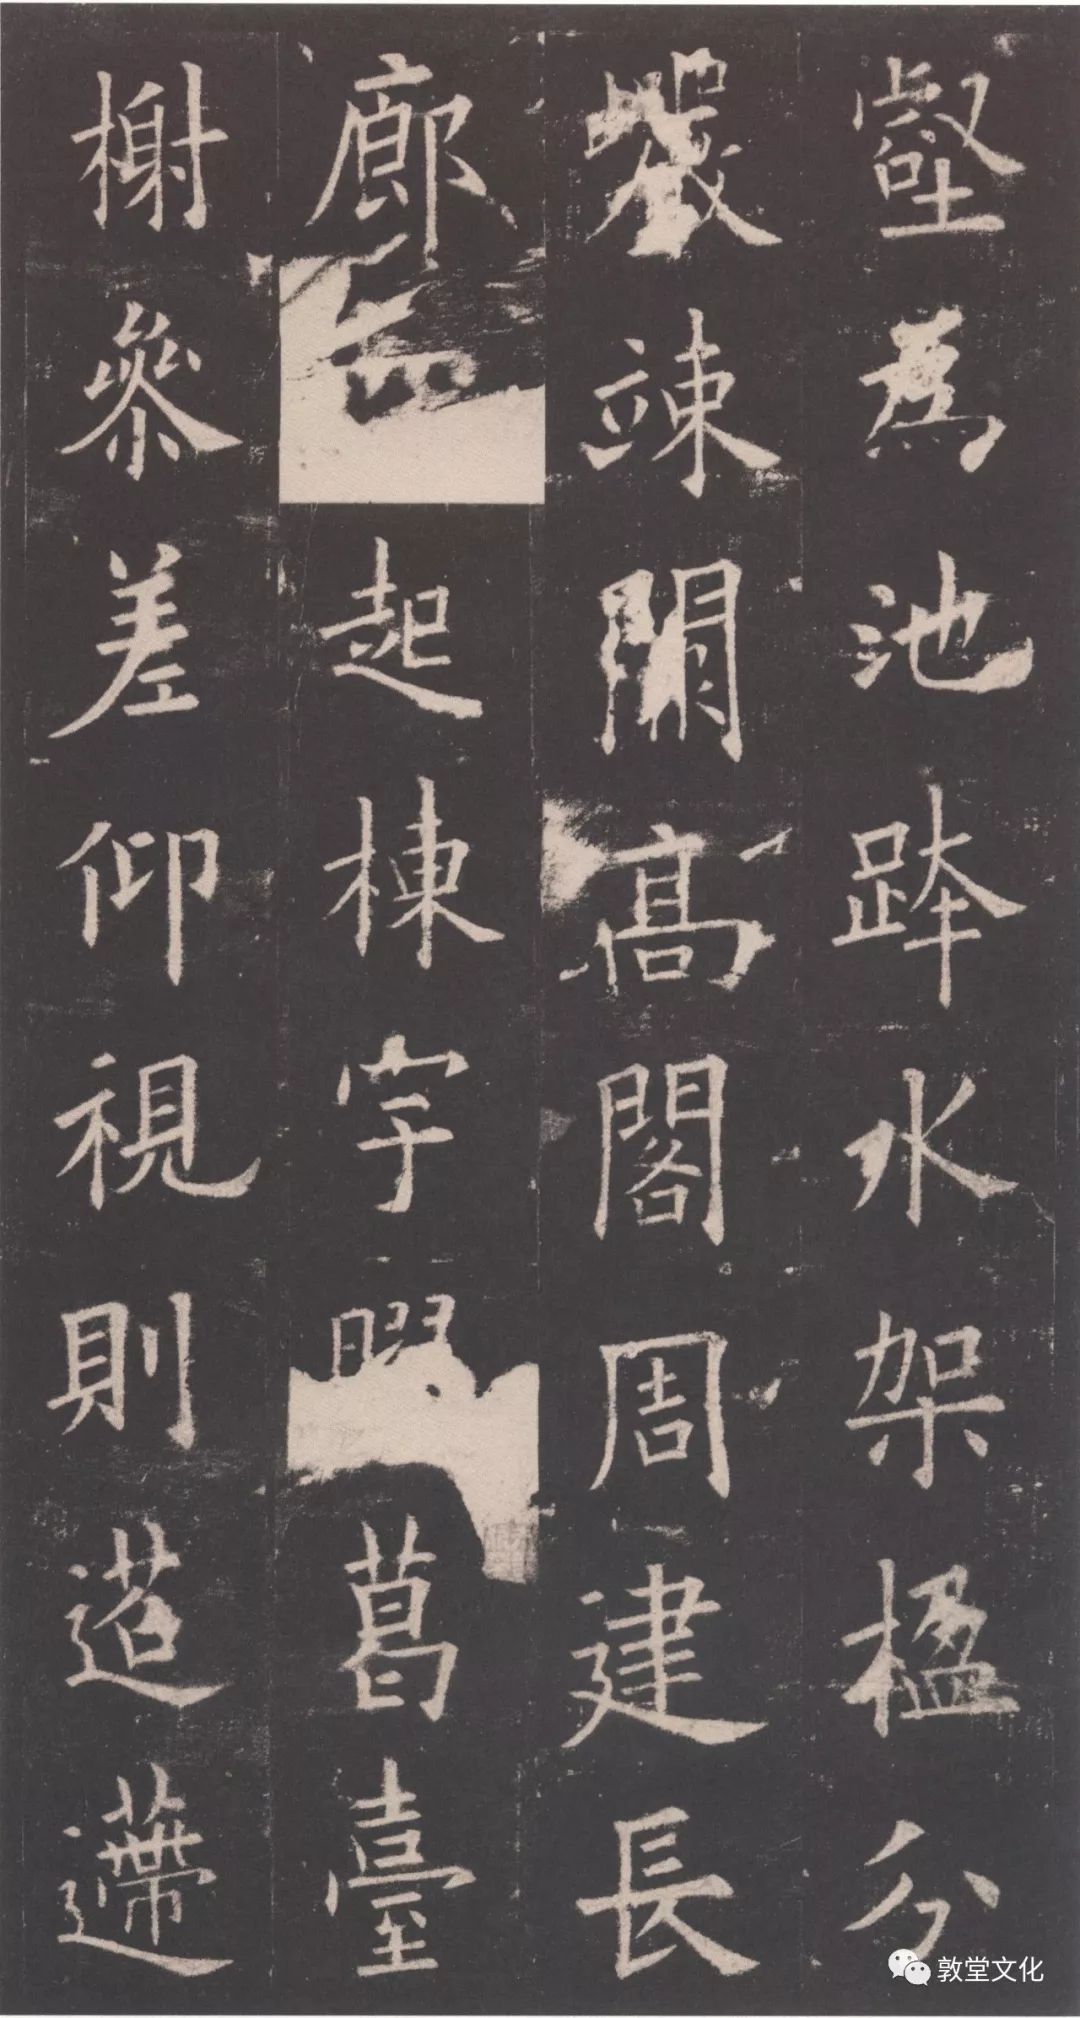 壑為池跨水架楹分
巖竦闕高閣周建長
廊起棟宇葛臺
榭參差仰視則迢遰
敦堂文化